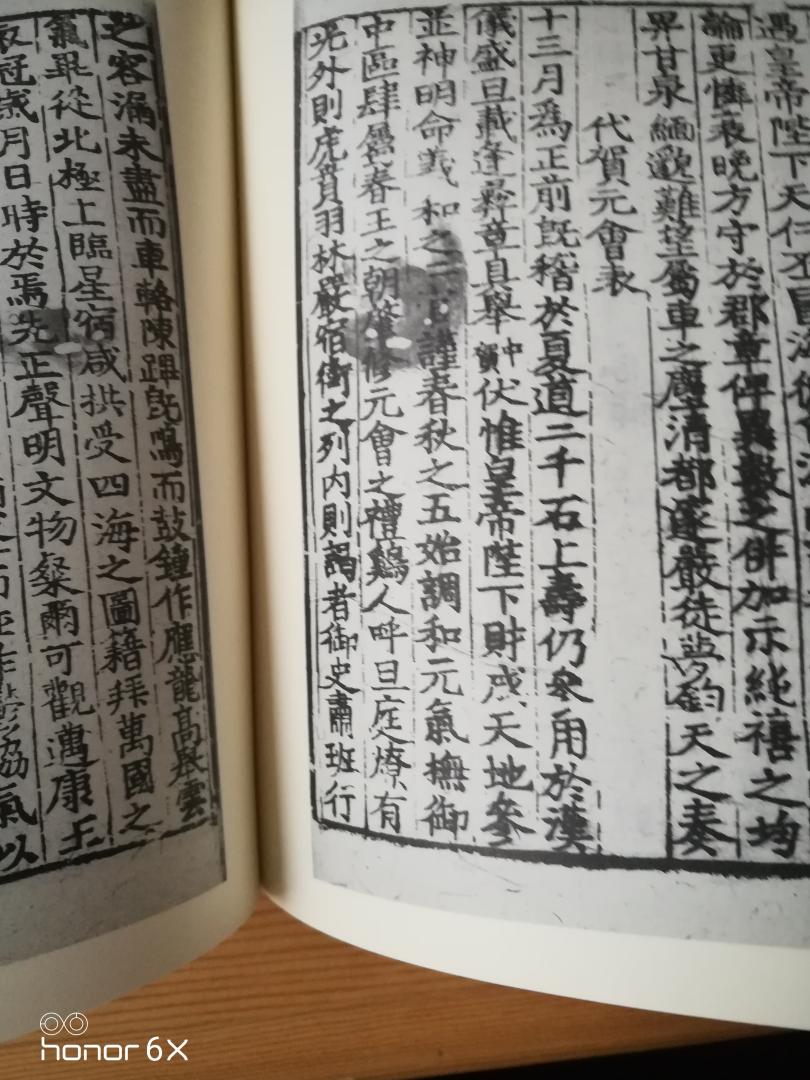 遇皇帝陛下天仁不
論更憐衰晚方守於郡章俾異數之俳加示純禧之均
畀甘泉緬邈難望屬車之塵清都邃嚴徒夢鈞天之奏
代賀元會表
十三月爲正前旣稽於夏道二千石上壽仍參用於漢
儀盛旦載逢彞章具舉中賀伏惟皇帝陛下財成天地參
並神明命羲和之二謹春秋之五始調和元氣撫御
中區肆屬春王之朝肇修元會之禮鷄人呼旦庭燎有
光外則虎賁羽林嚴宿衛之列内則謁者御史肅班行
之容漏未盡而車輅陳蹕旣鳴而鼓鐘作應龍高舉雲
氣畢從北極上臨星宿咸拱受四海之圖籍拜萬國之
衣冠歲月日時於焉先正聲明文物粲爾可觀邁康王
協氣以
honor 6X